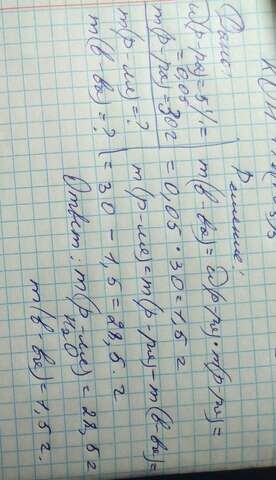 Дано:
ω(р-ра)=5%=
=0,05
m(р-ра)=30г
m(р-ля)=?
m(в-ва)=?
Решение:
m(в-ва)=ω(р-ра)·m(р-ра)=
=0,05·30=1,5 г
m(р-ля)=m(р-ра)-m(в-ва)=
=30-1,5=28,5 г
Ответ: m(р-ля)=28,5 г
H₂O
m(в-ва)=1,5 г.